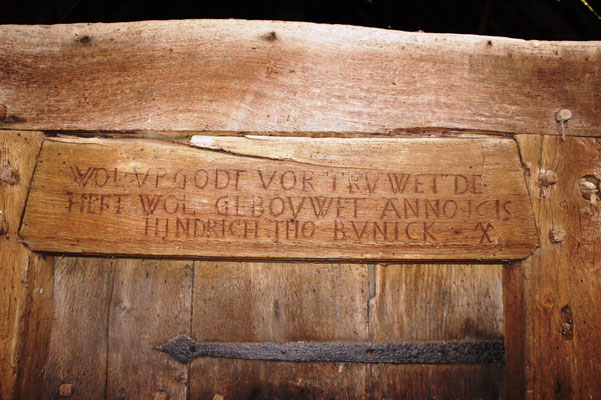 WOL VP GODT VOR TRVWET DE
HEFT WOL GEBOVWET ANNO 1615
HINDRICH THO BVNICK